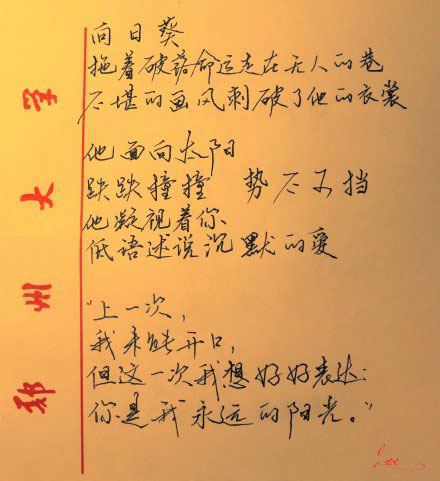 向日葵
拖着破落命运走在无人的巷
不堪的画风刺破了他的衣裳
他面向太阳
跌跌撞撞 势不可挡
他凝视着你
低语述说沉默的愛
“上一次，
我未能开口，
但这一次我想好好表达：
你是我永远的阳光。”
郑州大学
Love